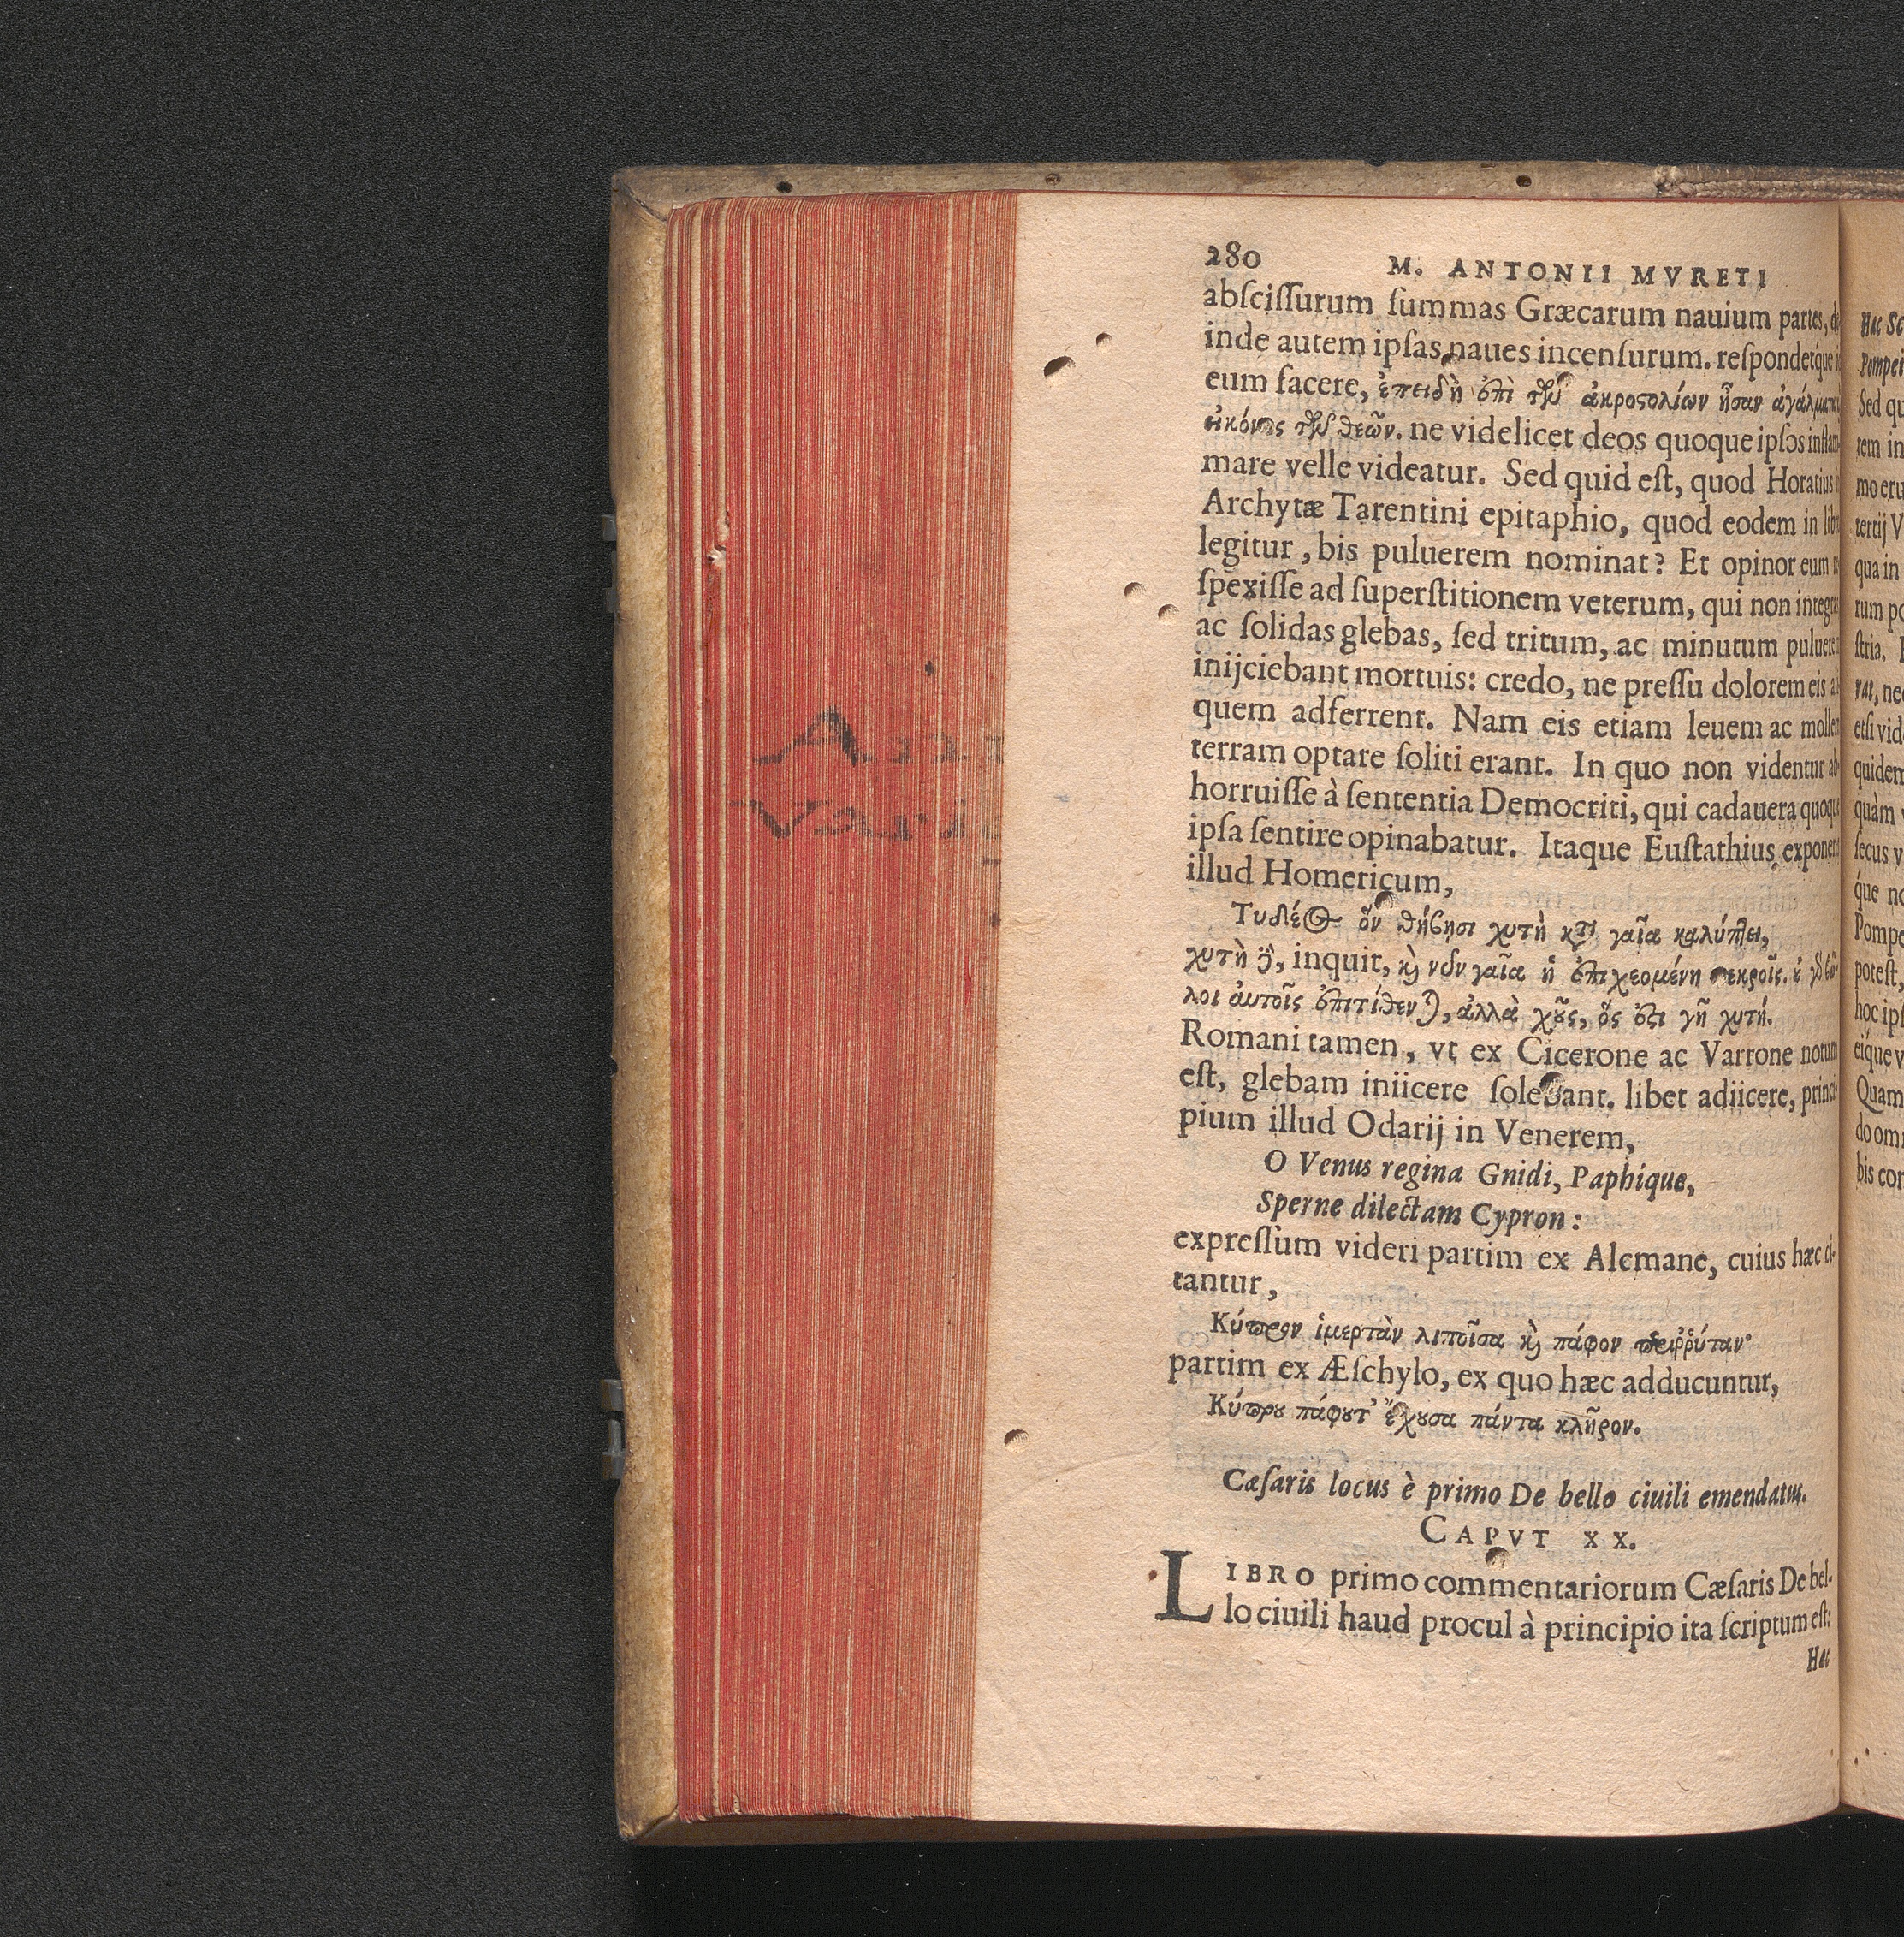 280 M. ANTONII MVRETI
abſciſſurum ſummas Græcarum nauium partes, de
inde autem ipſas naues incenſurum. reſpondetq́ue
eum facere, ἐπειδὴ ἐπὶ τῶν ἀκροστολίων ἦσαν ἀγάλματα
εἰκόνες τῶν θεῶν. ne videlicet deos quoque ipſos inflam-
mare velle videatur. Sed quid eſt, quod Horatius
Archytæ Tarentini epitaphio, quod eodem in libro
legitur, bis puluerem nominat? Et opinor eum re
ſpexiſſe ad ſuperſtitionem veterum, qui non integras
ac ſolidas glebas, ſed tritum, ac minutum puluerem
inijciebant mortuis: credo, ne preſſu dolorem eis ali
quem adferrent. Nam eis etiam leuem ac mollem
terram optare ſoliti erant. In quo non videntur ab-
horruiſſe à ſententia Democriti, qui cadauera quoque
ipſa ſentire opinabatur. Itaque Euſtathius exponens
illud Homericum,
Τυδέος ὃν θήβησι χυτὴ κτ̀ γαῖα καλύπτει,
χυτὴ δὲ, inquit, καὶ νῦν γαῖα ἡ ἐπιχεομένη νεκροῖς. οὐ γὰρ βῶ-
λοι αὐτοῖς ἐπιτίθενται, ἀλλὰ χοῦς, ὅς ἐστι γῆ χυτή.
Romani tamen, vt ex Cicerone ac Varrone notum
eſt, glebam iniicere ſolebant. libet adiicere, princi-
pium illud Odarij in Venerem,
O Venus regina Gnidi, Paphique,
Sperne dilectam Cypron:
expreſſum videri partim ex Alcmane, cuius hæc ci-
tantur,
Κύπρον ἱμερτὰν λιποῖσα καὶ πάφον περιῤῥύταν·
partim ex Æſchylo, ex quo hæc adducuntur,
Κύπρου πάφου τ' ἔχουσα πάντα κλῆρον.
Cæſaris locus è primo De bello ciuili emendatus.
CAPVT XX.
LIBRO primo commentariorum Cæſaris De bel-
lo ciuili haud procul à principio ita ſcriptum eſt:
Hac
Hac
Pompei
Sed qu
tem in
mo eru
tertij V
qua in
rum po
ſtria.
rat, nec
etſi vid
quidem
quàm
ſecus v
q́ue no
Pompe
poteſt,
hoc ipſ
eíque v
Quam
do omn
bis cor